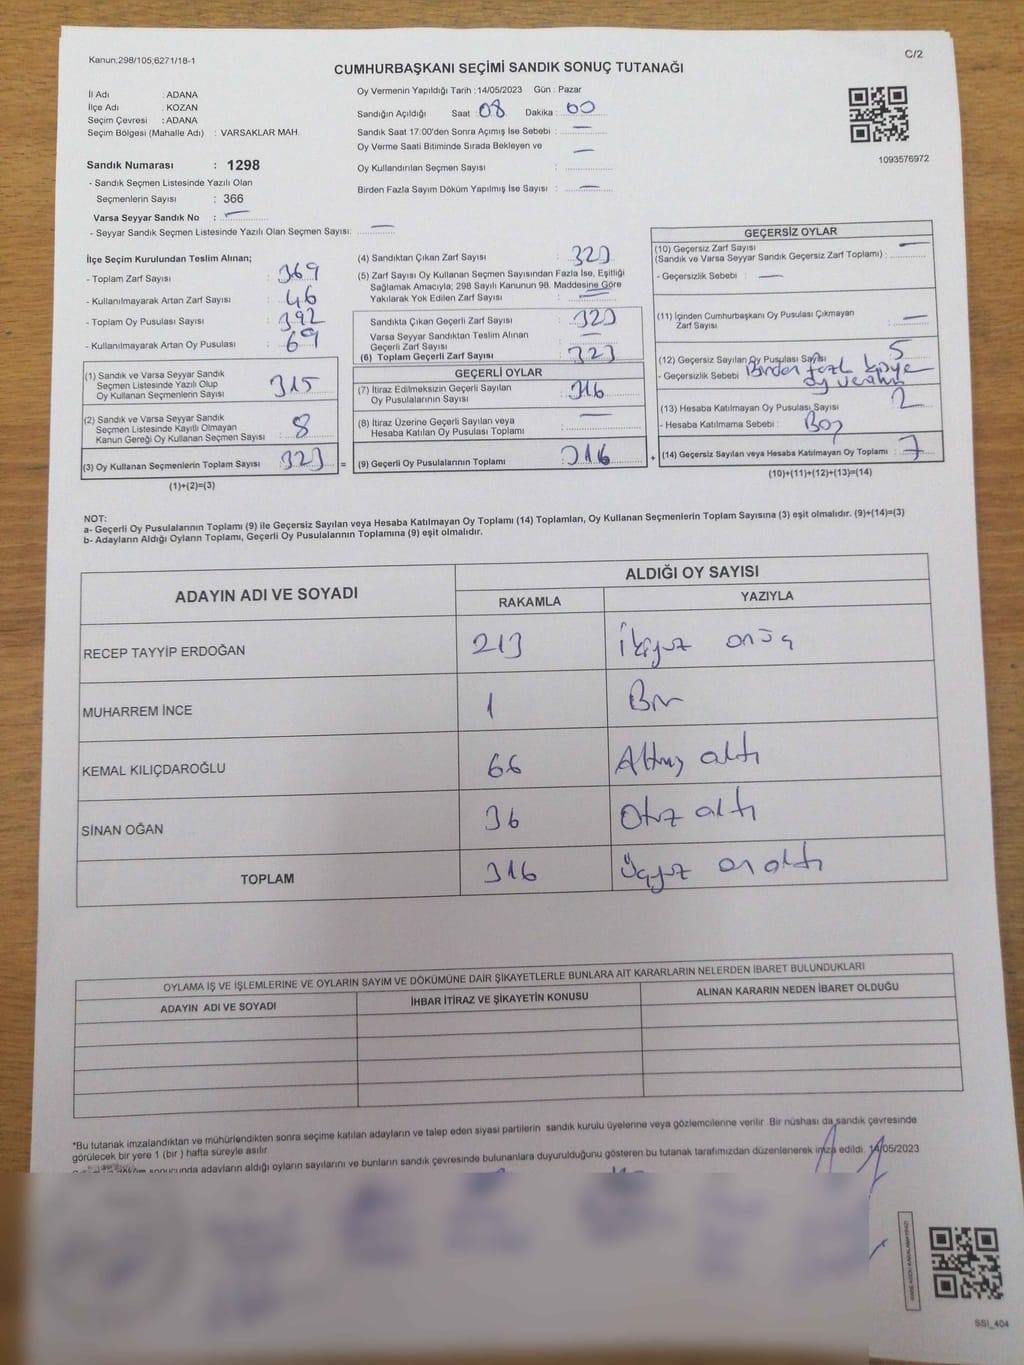 Kanun;298/105;6271/18-1
C/2
CUMHURBAŞKANI SEÇİMİ SANDIK SONUÇ TUTANAĞI
İl Adı : ADANA
İlçe Adı : KOZAN
Seçim Çevresi : ADANA
Seçim Bölgesi (Mahalle Adı) : VARSAKLAR MAH.
Sandık Numarası : 1298
- Sandık Seçmen Listesinde Yazılı Olan
Seçmenlerin Sayısı : 366
Varsa Seyyar Sandık No : —
- Seyyar Sandık Seçmen Listesinde Yazılı Olan Seçmen Sayısı: —
Oy Vermenin Yapıldığı Tarih : 14/05/2023 Gün : Pazar
Sandığın Açıldığı Saat : 08 Dakika : 00
Sandık Saat 17:00'den Sonra Açımış İse Sebebi : —
Oy Verme Saati Bitiminde Sırada Bekleyen ve —
Oy Kullandırılan Seçmen Sayısı :
Birden Fazla Sayım Döküm Yapılmış İse Sayısı : —
1093576972
İlçe Seçim Kurulundan Teslim Alınan;
- Toplam Zarf Sayısı : 369
- Kullanılmayarak Artan Zarf Sayısı : 46
- Toplam Oy Pusulası Sayısı : 392
- Kullanılmayarak Artan Oy Pusulası : 69
(1) Sandık ve Varsa Seyyar Sandık
Seçmen Listesinde Yazılı Olup
Oy Kullanan Seçmenlerin Sayısı : 315
(2) Sandık ve Varsa Seyyar Sandık
Seçmen Listesinde Kayıtlı Olmayan
Kanun Gereği Oy Kullanan Seçmen Sayısı : 8
(3) Oy Kullanan Seçmenlerin Toplam Sayısı : 323 =
(1)+(2)=(3)
(4) Sandıktan Çıkan Zarf Sayısı : 323
(5) Zarf Sayısı Oy Kullanan Seçmen Sayısından Fazla İse, Eşitliği
Sağlamak Amacıyla; 298 Sayılı Kanunun 98. Maddesine Göre
Yakılarak Yok Edilen Zarf Sayısı : —
Sandıkta Çıkan Geçerli Zarf Sayısı : 323
Varsa Seyyar Sandıktan Teslim Alınan
Geçerli Zarf Sayısı : —
(6) Toplam Geçerli Zarf Sayısı : 323
GEÇERLİ OYLAR
(7) İtiraz Edilmeksizin Geçerli Sayılan
Oy Pusulalarının Sayısı : 316
(8) İtiraz Üzerine Geçerli Sayılan veya
Hesaba Katılan Oy Pusulası Toplamı : —
(9) Geçerli Oy Pusulalarının Toplamı : 316 +
GEÇERSİZ OYLAR
(10) Geçersiz Zarf Sayısı
(Sandık ve Varsa Seyyar Sandık Geçersiz Zarf Toplamı) : —
- Geçersizlik Sebebi : —
(11) İçinden Cumhurbaşkanı Oy Pusulası Çıkmayan
Zarf Sayısı : —
(12) Geçersiz Sayılan Oy Pusulası Sayısı : 5
- Geçersizlik Sebebi : Birden fazla kişiye
oy verilmiş
(13) Hesaba Katılmayan Oy Pusulası Sayısı : 2
- Hesaba Katılmama Sebebi : Boş
(14) Geçersiz Sayılan veya Hesaba Katılmayan Oy Toplamı : 7
(10)+(11)+(12)+(13)=(14)
NOT:
a- Geçerli Oy Pusulalarının Toplamı (9) ile Geçersiz Sayılan veya Hesaba Katılmayan Oy Toplamı (14) Toplamları, Oy Kullanan Seçmenlerin Toplam Sayısına (3) eşit olmalıdır. (9)+(14)=(3)
b- Adayların Aldığı Oyların Toplamı, Geçerli Oy Pusulalarının Toplamına (9) eşit olmalıdır.
ADAYIN ADI VE SOYADI ALDIĞI OY SAYISI
RAKAMLA YAZIYLA
RECEP TAYYİP ERDOĞAN 213 İkiyüz onüç
MUHARREM İNCE 1 Bir
KEMAL KILIÇDAROĞLU 66 Altmış altı
SİNAN OĞAN 36 Otuz altı
TOPLAM 316 Üçyüz on altı
OYLAMA İŞ VE İŞLEMLERİNE VE OYLARIN SAYIM VE DÖKÜMÜNE DAİR ŞİKAYETLERLE BUNLARA AİT KARARLARIN NELERDEN İBARET BULUNDUKLARI
ADAYIN ADI VE SOYADI İHBAR İTİRAZ VE ŞİKAYETİN KONUSU ALINAN KARARIN NEDEN İBARET OLDUĞU
*Bu tutanak imzalandıktan ve mühürlendikten sonra seçime katılan adayların ve talep eden siyasi partilerin sandık kurulu üyelerine veya gözlemcilerine verilir. Bir nüshası da sandık çevresinde
görülecek bir yere 1 (bir) hafta süreyle asılır.
sonucunda adayların aldığı oyların sayılarını ve bunların sandık çevresinde bulunanlara duyurulduğunu gösteren bu tutanak tarafımızdan düzenlenerek imza edildi. 14/05/2023
SSI_404